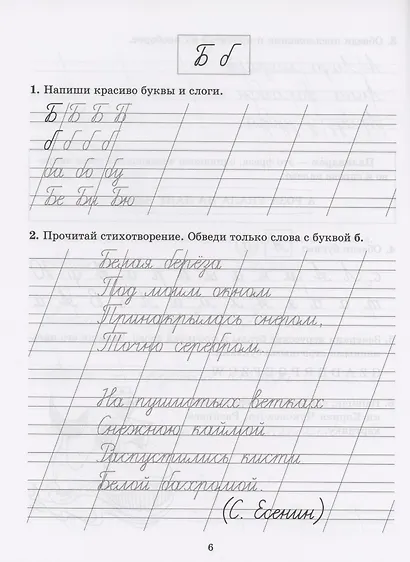 Б б
1. Напиши красиво буквы и слоги.
Б Б Б Б
б б б б
ба бо бу
Бе Бя Бю
2. Прочитай стихотворение. Обведи только слова с буквой б.
Белая берёза
Под моим окном
Принакрылась снегом,
Точно серебром.
На пушистых ветках
Снежною каймой
Распустились кисти
Белой бахромой.
(С. Есенин)
6